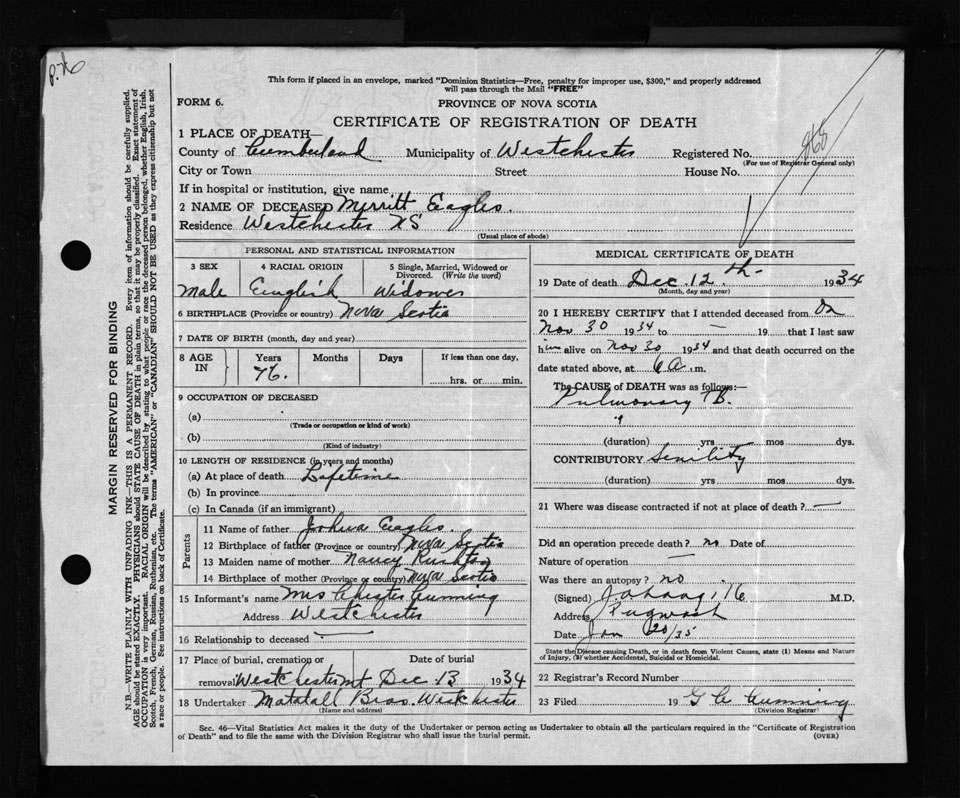 P. 76
This form if placed in an envelope, marked "Dominion Statistics—Free, penalty for improper use, $300," and properly addressed
will pass through the Mail "FREE"
FORM 6.
PROVINCE OF NOVA SCOTIA
CERTIFICATE OF REGISTRATION OF DEATH
868
1 PLACE OF DEATH—
County of Cumberland Municipality of Westchester Registered No.
(For use of Registrar General only)
City or Town Street House No.
If in hospital or institution, give name
2 NAME OF DECEASED Myrritt Eagles.
Residence Westchester XS
(Usual place of abode)
PERSONAL AND STATISTICAL INFORMATION
3 SEX 4 RACIAL ORIGIN 5 Single, Married, Widowed or Divorced. (Write the word)
Male English Widower
6 BIRTHPLACE (Province or country) Nova Scotia
7 DATE OF BIRTH (month, day and year)
8 AGE IN Years Months Days If less than one day,
76. hrs. or min.
9 OCCUPATION OF DECEASED
(a)
(Trade or occupation or kind of work)
(b)
(Kind of industry)
10 LENGTH OF RESIDENCE (in years and months)
(a) At place of death Lifetime
(b) In province
(c) In Canada (if an immigrant)
Parents
11 Name of father Joshua Eagles.
12 Birthplace of father (Province or country) Nova Scotia
13 Maiden name of mother Nancy
14 Birthplace of mother (Province or country) Nova Scotia
15 Informant's name Mrs Chester Cumming
Address Westchester
16 Relationship to deceased —
17 Place of burial, cremation or Date of burial
removal Westchester Mt Dec 13 1934
18 Undertaker Matatall Bros. Westchester
(Name and address)
MEDICAL CERTIFICATE OF DEATH
19 Date of death Dec. 12th 1934
(Month, day and year)
20 I HEREBY CERTIFY that I attended deceased from On
Nov 30 1934 to — 19 that I last saw
him alive on Nov 30 1934 and that death occurred on the
date stated above, at 6 a.m.
The CAUSE of DEATH was as follows:—
Pulmonary TB.
(duration) yrs mos dys.
CONTRIBUTORY Senility
(duration) yrs. mos. dys.
21 Where was disease contracted if not at place of death? —
Did an operation precede death? no Date of
Nature of operation —
Was there an autopsy? no
(Signed) M.D.
Address Pugwash
Date Jan 20/35
State the Disease causing Death, or in death from Violent Causes, state (1) Means and Nature
of Injury, (2) whether Accidental, Suicidal or Homicidal.
22 Registrar's Record Number
23 Filed 19 G C Cumming
(Division Registrar)
Sec. 46—Vital Statistics Act makes it the duty of the Undertaker or person acting as Undertaker to obtain all the particulars required in the "Certificate of Registration
of Death" and to file the same with the Division Registrar who shall issue the burial permit.
(OVER)
MARGIN RESERVED FOR BINDING
N.B.—WRITE PLAINLY WITH UNFADING INK—THIS IS A PERMANENT RECORD. Every item of information should be carefully supplied.
AGE should be stated EXACTLY. PHYSICIANS should STATE CAUSE OF DEATH in plain terms, so that it may be properly classified. Exact statement of
OCCUPATION is very important. RACIAL ORIGIN will be described by stating to what people or race the deceased person belonged, whether English, Irish,
Scotch, French, German, Russian, Ruthenian, etc. The terms "AMERICAN" or "CANADIAN" SHOULD NOT BE USED as they express citizenship but not
a race or people. See instructions on back of Certificate.